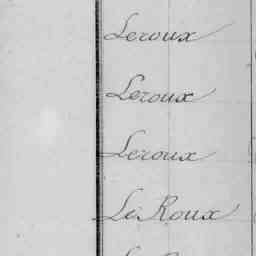 Leroux
Leroux
Leroux
Le Roux